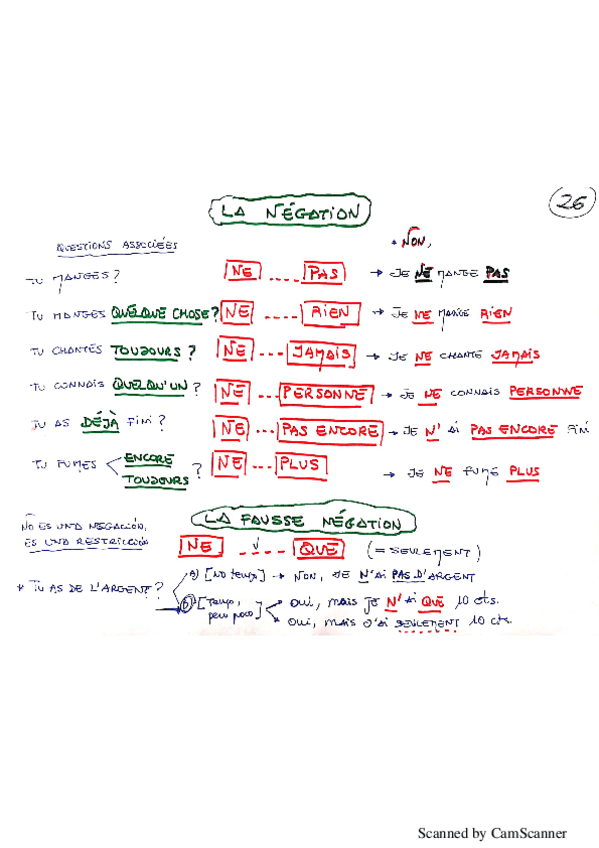 LA NÉGATION
26
QUESTIONS ASSOCIÉES
* NON,
TU MANGES? NE .... PAS → JE NE MANGE PAS
TU MANGES QUELQUE CHOSE? NE .... RIEN → JE NE MANGE RIEN
TU CHANTES TOUJOURS? NE ... JAMAIS → JE NE CHANTE JAMAIS
TU CONNAIS QUELQU'UN? NE ... PERSONNE → JE NE CONNAIS PERSONNE
TU AS DÉJÀ FINI? NE ... PAS ENCORE → JE N'AI PAS ENCORE FINI
TU FUMES ENCORE
TOUJOURS ? NE ... PLUS → JE NE FUME PLUS
NO ES UNA NEGACIÓN,
ES UNA RESTRICCIÓN
LA FAUSSE NÉGATION
NE ... QUE (= SEULEMENT)
* TU AS DE L'ARGENT?
A) [NO tengo] → NON, JE N'AI PAS D'ARGENT
B) [Tengo, pero poco]
OUI, MAIS JE N'AI QUE 10 cts.
OUI, MAIS J'AI SEULEMENT 10 cts.
Scanned by CamScanner